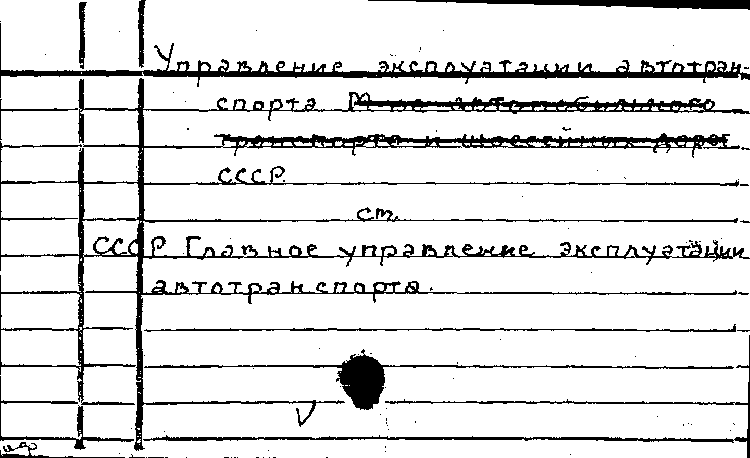 Управление эксплуатации автотран-
спорта М-ва автомобильного
транспорта и шоссейных дорог
СССР.
ст.
СССР Главное управление эксплуатации
автотранспорта.